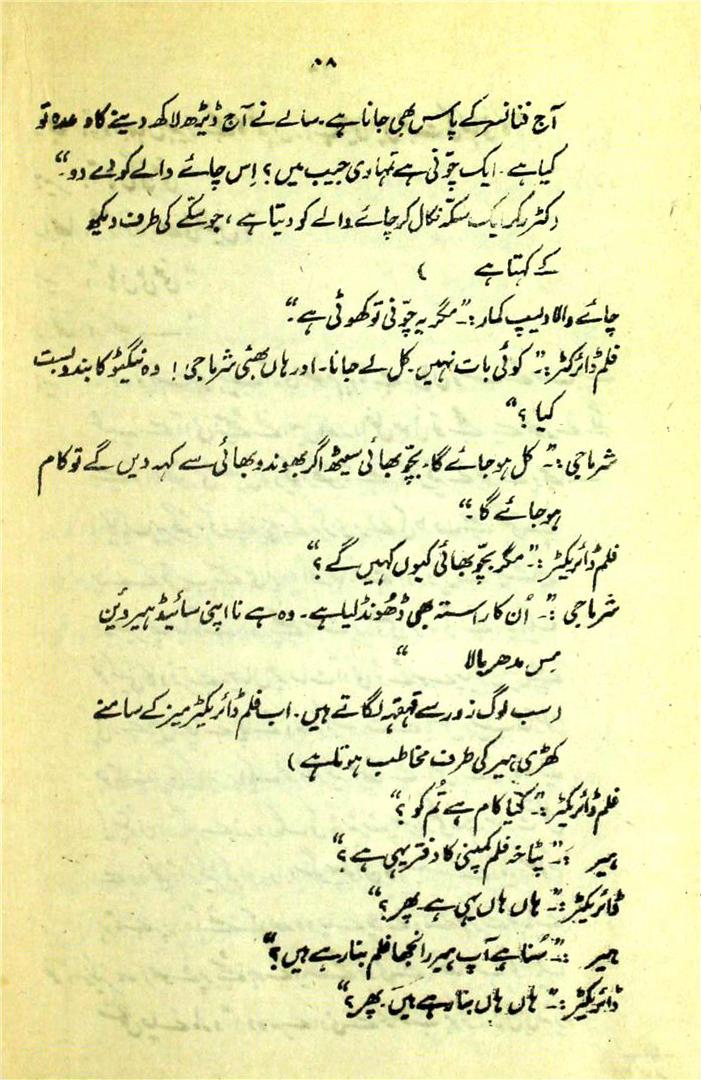 ۵۸
آج فنانسر کے پاس بھی جانا ہے۔ سالے نے آج ڈیڑھ لاکھ دینے کا وعدہ تو
کیا ہے۔ ایک چوّنی ہے تمہاری جیب میں؟ اِس چائے والے کو دے دو۔"
(کٹر یکدم ایک سکّہ نکال کر چائے والے کو دیتا ہے، جو سکّے کی طرف دیکھ
کے کہتا ہے )
چائے والا دلیپ کمار :۔" مگر یہ چوّنی تو کھوٹی ہے۔"
فلم ڈائرکٹر :۔" کوئی بات نہیں۔ کل لے جانا۔ اور ہاں بھئی شرما جی! وہ نیگیٹو کا بندوبست
کیا؟"
شرما جی :۔" کل ہو جائے گا۔ بچّو بھائی سیٹھ اگر بھوندو بھائی سے کہہ دیں گے تو کام
ہو جائے گا۔"
فلم ڈائریکٹر :۔" مگر بچّو بھائی کیوں کہیں گے؟"
شرما جی :۔" اُن کا راستہ بھی ڈھونڈ لیا ہے۔ وہ ہے نا اپنی سائیڈ ہیروئین
مِس مدھر بالا "
(سب لوگ زور سے قہقہہ لگاتے ہیں۔ اب فلم ڈائریکٹر میز کے سامنے
کھڑی ہیر کی طرف مخاطب ہوتا ہے)
فلم ڈائریکٹر :۔" کیا کام ہے تُم کو؟"
ہیر :۔" پٹاخہ فلم کمپنی کا دفتر یہی ہے؟"
ڈائریکٹر :۔" ہاں ہاں یہی ہے۔ پھر؟"
ہیر :۔" سُنا ہے آپ ہیر رانجھا فلم بنا رہے ہیں؟"
ڈائریکٹر :۔" ہاں ہاں بنا رہے ہیں۔ پھر؟"